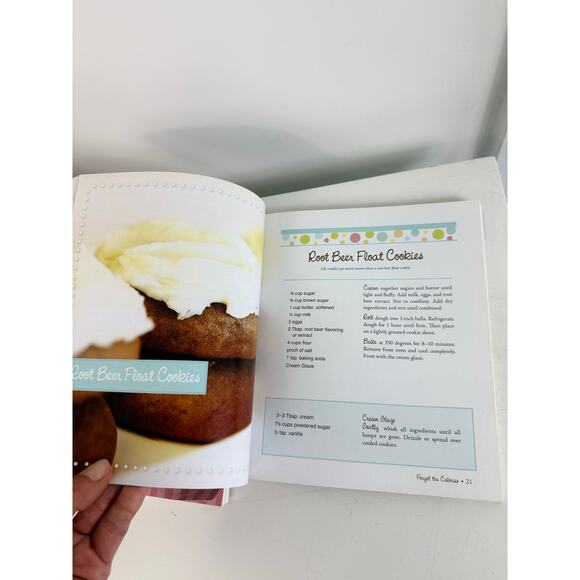 Root Beer Float Cookies
Root Beer Float Cookies
Life couldn't get much sweeter than a root beer float cookie
¾ cup sugar
¾ cup brown sugar
1 cup butter, softened
¼ cup milk
2 eggs
2 Tbsp. root beer flavoring
or extract
4 cups flour
pinch of salt
1 tsp. baking soda
Cream Glaze
Cream together sugars and butter until
light and fluffy. Add milk, eggs, and root
beer extract. Stir to combine. Add dry
ingredients until combined.
Roll dough into 1-inch balls. Refrigerate
dough for 1 hour until firm. Then place
on a lightly greased cookie sheet.
Bake at 350 degrees for 8–10 minutes.
Remove from oven and cool completely.
Frost with the cream glaze.
2–3 Tbsp. cream
1½ cups powdered sugar
½ tsp. vanilla
Cream Glaze
Gently whisk all ingredients until all
lumps are gone. Drizzle or spread over
cooled cookies.
Forget the Calories • 21